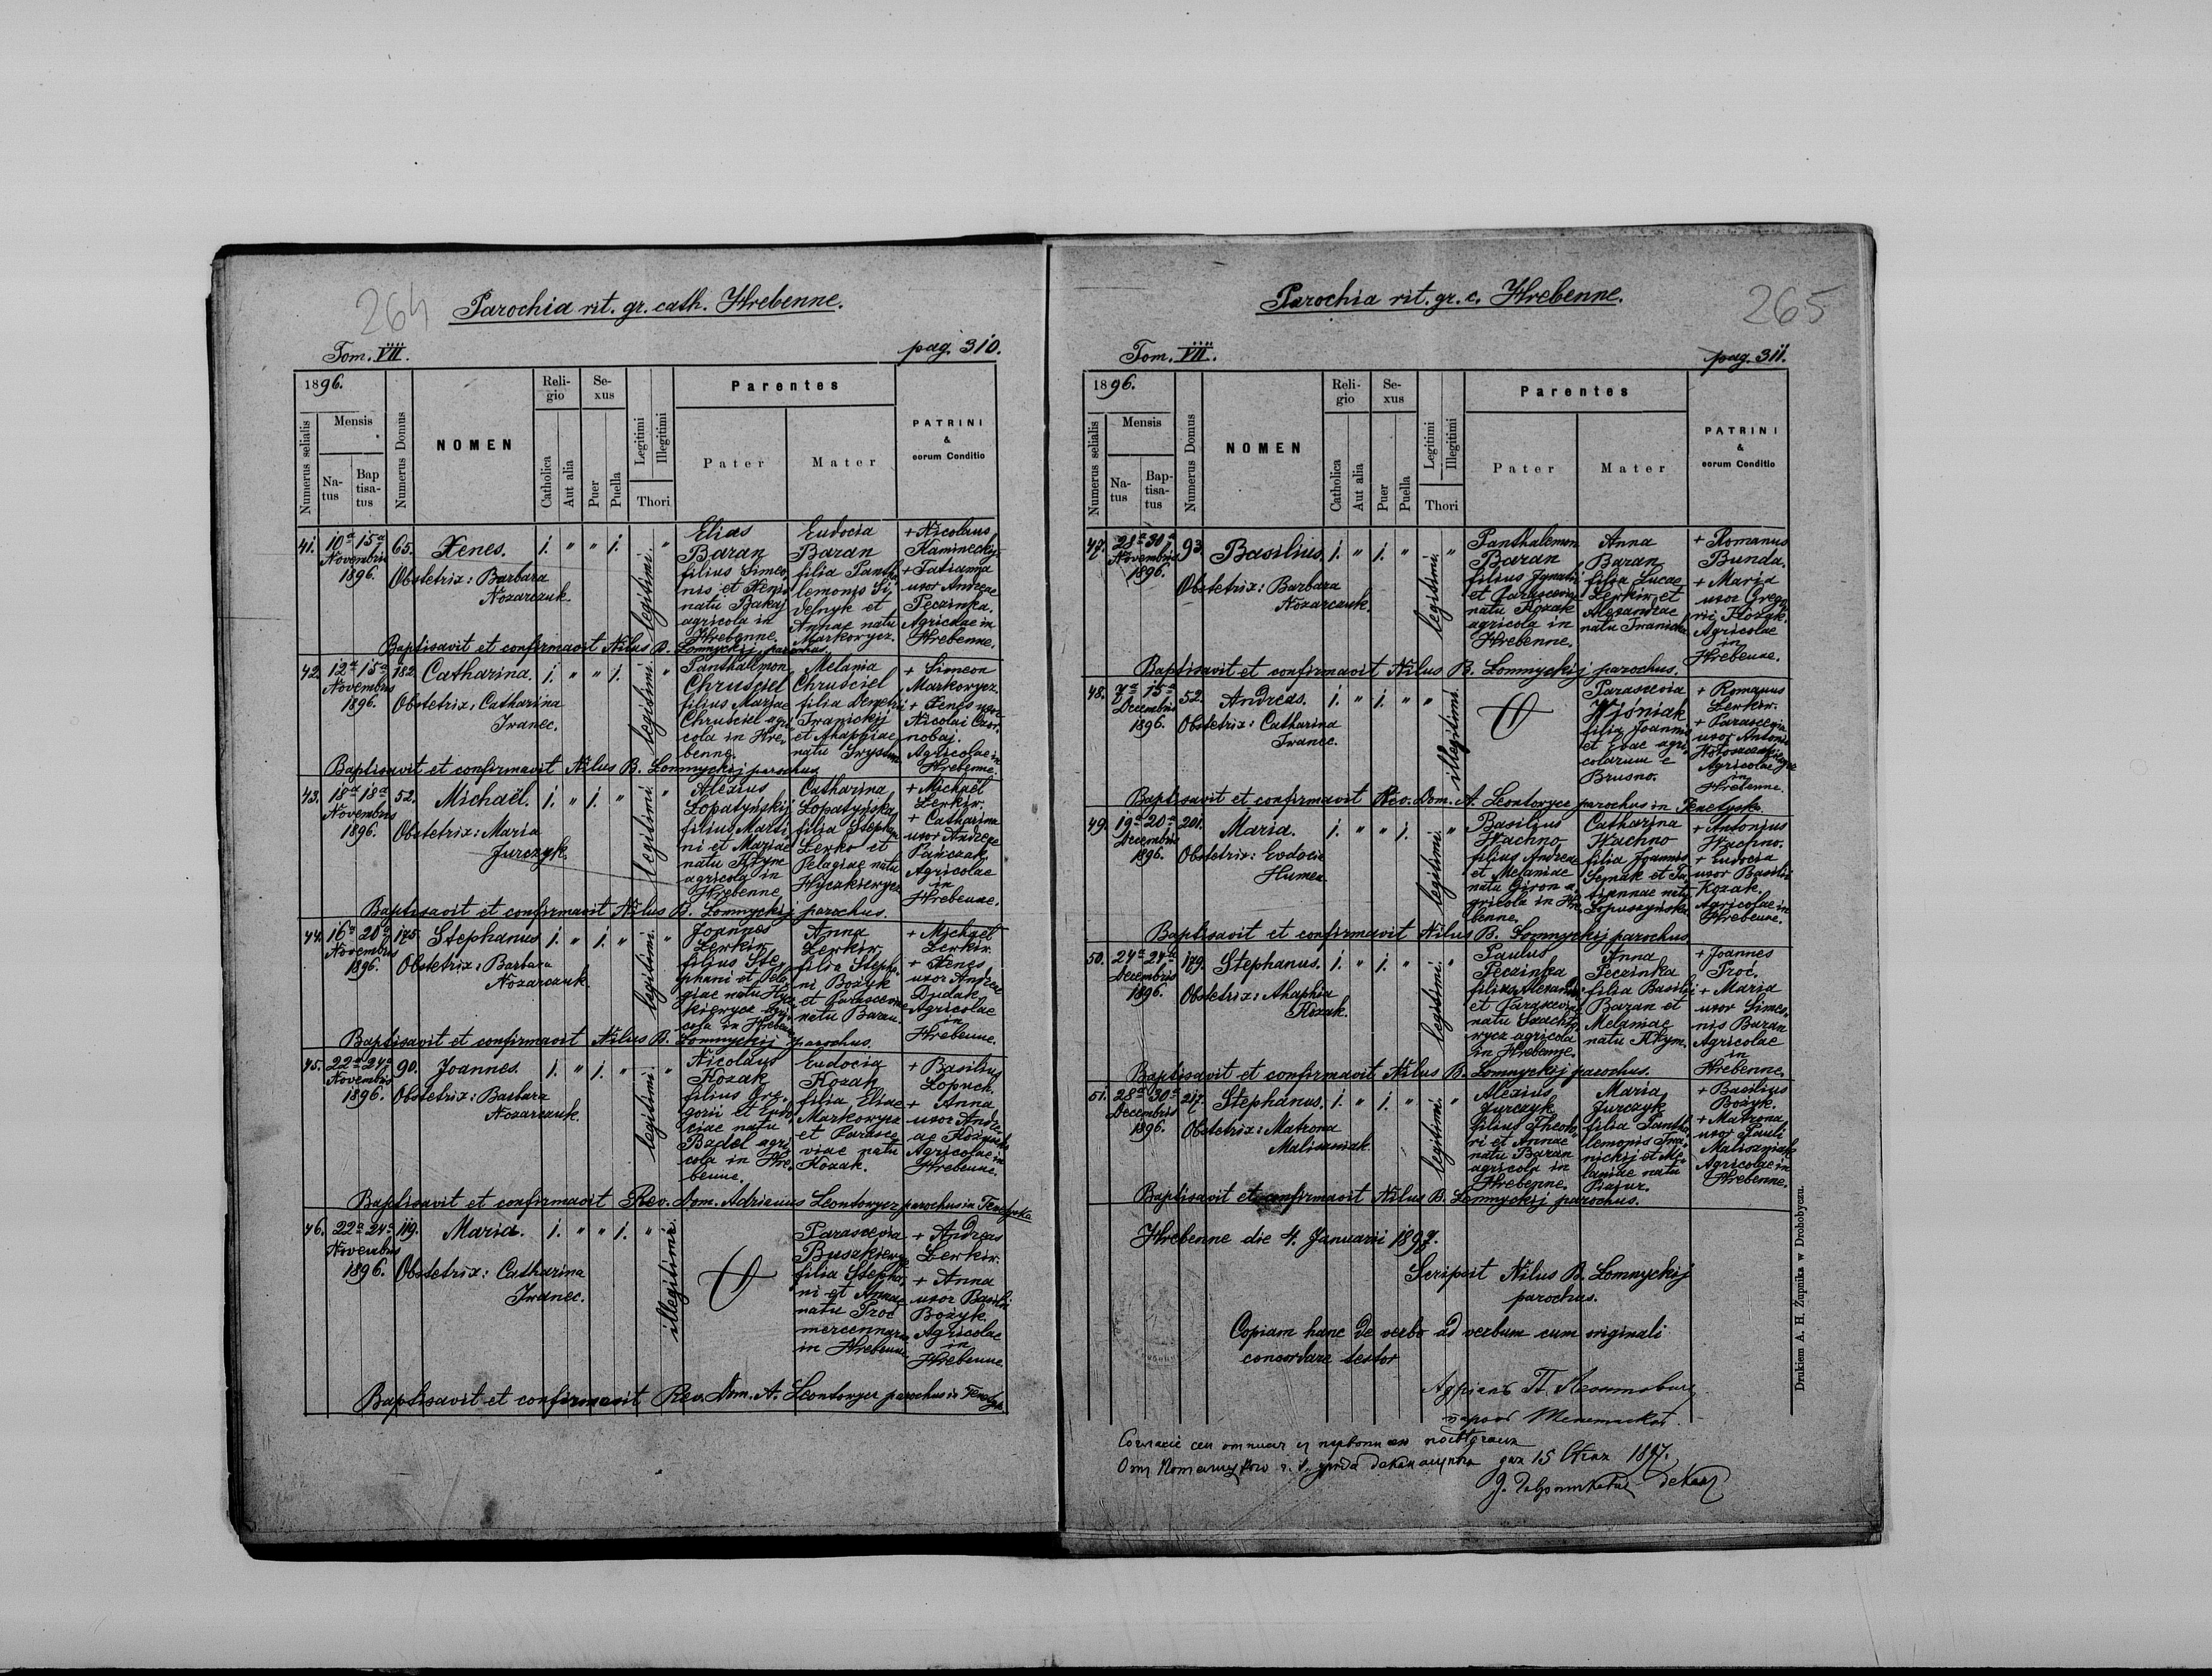 264
Parochia rit. gr. cath. Hrebenne.
Tom. VII. pag. 310.
1896.
Numerus selialis
Mensis
Natus
Bap tisa- tus
Numerus Domus
NOMEN
Reli- gio
Catholica
Aut alia
Se- xus
Puer
Puella
Legitimi
Illegitimi
Thori
Parentes
Pater
Mater
PATRINI
&
eorum Conditio
41. 10a 15a Novembris 1896. 65. Xenes. 1. " " 1. legitimi. "
Obstetrix: Barbara
Nozarczuk.
Elias
Baran
filius Simeo
nis et Xenis
natu Bakaj
agricola in
Hrebenne.
Eudocia
Baran
filia Panth
lemonis Si
delnyk et
Annae natu
Markowycz.
+ Nicolaus
Kamineckij.
+ Tatianna
uxor Andreae
Peczinka.
Agricolae in
Hrebenne.
Baptisavit et confirmavit Nilus B. Lomnyckij parochus.
42. 12a 15a Novembris 1896. 182. Catharina. 1. " " 1. legitimi. "
Obstetrix: Catharina
Iwanec.
Panthalemon
Chrusciel
filius Mariae
Chrusciel agri
cola in Hre
benne.
Melania
Chrusciel
filia Demetrii
Iwanickij
et Ahaphiae
natu
+ Simeon
Markowycz.
+ Xenes uxor
Nicolai Czor
nobaj.
Agricolae in
Hrebenne.
Baptisavit et confirmavit Nilus B. Lomnyckij parochus
43. 18a 18a Novembris 1896. 52. Michaël. 1. " 1. " legitimi. "
Obstetrix: Maria
Jurczyk.
Alexius
Lopatyńskij
filius Marti
ni et Mariae
natu Hrym
agricola in
Hrebenne
Catharina
Lopatyńska
filia Stephani
Lerko et
Pelagiae natu
+ Michaël
Lerkiw.
+ Catharina
uxor Andreae
Pańczak
Agricolae
in
Hrebenne.
Baptisavit et confirmavit Nilus B. Lomnyckij parochus.
44. 16a 20a Novembris 1896. 175. Stephanus 1. " 1. " legitimi. "
Obstetrix: Barbara
Nozarczuk.
Joannes
Lerkiw
filius Ste
phani et Pela
giae natu Hyc
kiewycz agri
cola in Hrebenne
Anna
Lerkiw
filia Stepha
ni Bożyk
et Parasceviae
natu Baran.
+ Michaël
Lerkiw.
+ Xenes
uxor Andreae
Dudak.
Agricolae
in
Hrebenne.
Baptisavit et confirmavit Nilus B. Lomnyckij parochus.
45. 22a 24a Novembris 1896. 90. Joannes. 1. " 1. " legitimi. "
Obstetrix: Barbara
Nozarczuk.
Nicolaus
Kozak
filius Gre
gorii et Eudo
ciae natu
Badel agri
cola in Hre
benne.
Eudocia
Kozak
filia Eliae
Markowycz
et Parasce
viae natu
Kozak.
+ Basilius
Lopuch.
+ Anna
uxor Andre
ae
Agricolae in
Hrebenne.
Baptisavit et confirmavit Rev. Dom. Adrianus Leontowycz parochus in Teniatyska
46. 22a 24a Novembris 1896. 119. Maria. 1. " " 1. " illegitimi.
Obstetrix: Catharina
Iwanec.
Parascevia
filia Stepha
ni et Annae
natu Proć
mercennaria
in Hrebenne
+ Andreas
Lerkiw.
+ Anna
uxor Basilii
Bożyk
Agricolae
in
Hrebenne
Baptisavit et confirmavit Rev. Dom. A. Leontowycz parochus in
265
Parochia rit. gr. c. Hrebenne.
Tom. VII. pag. 311.
1896.
Numerus selialis
Mensis
Na- tus
Bap- tisa- tus
Numerus Domus
NOMEN
Reli- gio
Catholica
Aut alia
Se- xus
Puer
Puella
Legitimi
Illegitimi
Thori
Parentes
Pater
Mater
PATRINI
&
eorum Conditio
47. 28a 30a Novembris 1896. 93. Basilius. 1. " 1. " legitimi. "
Obstetrix: Barbara
Nozarczuk.
Panthalemon
Baran
filius Ignatii
et Parasceviae
natu Kozak
agricola in
Hrebenne.
Anna
Baran
filia Lucae
Lerkiw et
Alexandrae
natu Iwanicka
+ Romanus
Bunda.
+ Maria
uxor Grego
rii
Agricolae
in
Hrebenne.
Baptisavit et confirmavit Nilus B. Lomnyckij parochus.
48. 7a 15a Decembris 1896. 52. Andreas. 1. " 1. " " illegitimi.
Obstetrix: Catharina
Iwanec.
Parascevia
Wiśniak
filia Joannis
et Evae agri
colarum e
Brusno.
+ Romanus
Lerkiw.
+ Parascevia
uxor Antonii
Agricolae
in
Hrebenne.
Baptisavit et confirmavit Rev. Dom. A. Leontowycz parochus in Teniatyska.
49. 19a 20a Decembris 1896. 201. Maria. 1. " " 1. legitimi. "
Obstetrix: Eudocia
Humen
Basilius
Wachno
filius Andreae
et Melaniae
natu Giron a
gricola in Hre
benne.
Catharina
Wachno
filia Joannis
Semak et Ta
tiannae natu
Lopuszyńska
+ Antonius
Wachno.
+ Eudocia
uxor Basilii
Kozak.
Agricolae in
Hrebenne.
Baptisavit et confirmavit Nilus B. Lomnyckij parochus
50. 24a 27a Decembris 1896. 179. Stephanus. 1. " 1. " legitimi. "
Obstetrix: Ahaphia
Kozak.
Paulus
Peczinka
filius Alexandri
et Parasceviae
natu Szachto
wycz agricola
in Hrebenne.
Anna
Peczinka
filia Basilii
Baran et
Melaniae
natu Hrym.
+ Joannes
Proć.
+ Maria
uxor Simeo
nis Baran
Agricolae
in
Hrebenne.
Baptisavit et confirmavit Nilus B. Lomnyckij parochus.
51. 28a 30a Decembris 1896. 217. Stephanus. 1. " 1. " legitimi. "
Obstetrix: Matrona
Maliszniak.
Alexius
Jurczyk
filius Theodo
ri et Annae
natu Baran
agricola in
Hrebenne.
Maria
Jurczyk
filia Pantha
lemonis Iwa
nickij et Me
laniae natu
+ Basilius
Bożyk.
+ Matrona
uxor Pauli
Maliszniak
Agricolae in
Hrebenne.
Baptisavit et confirmavit Nilus B. Lomnyckij parochus.
Hrebenne die 4. Januarii 1897.
Scripsit Nilus B. Lomnyckij
parochus.
Copiam hanc de verbo ad verbum cum originali
concordare testor
15 1897.
Drukiem A. H. Żupnika w Drohobyczu.